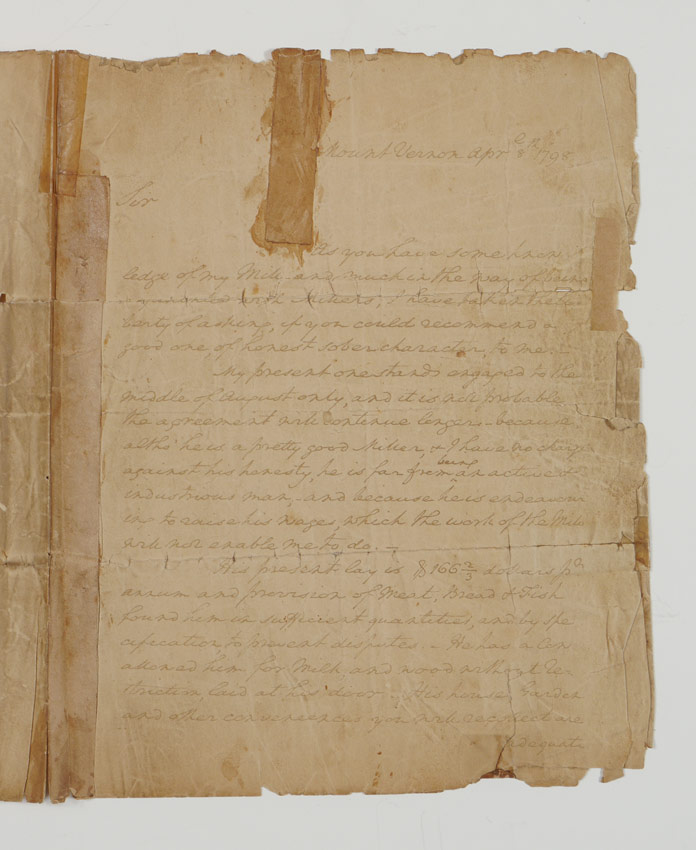 Mount Vernon Apr 8th 1798
Sir
As you have some know
ledge of my Mill and much in the way of being
with Millers, I have taken the li
berty of asking, if you could recommend a
good one of honest sober character, to me. –
My present one stands engaged to the
middle of August only, and it is not probable
the agreement will continue longer – because
altho' he is a pretty good Miller, & I have no charge
against his honesty, he is far from being an active &
industrious man, and because he is endeavour
ing to raise his wages, which the work of the Mill
will not enable me to do. –
His present lay is $166 2/3 dollars pr
annum and provision of Meat, Bread & Fish
found him in sufficient quantities, and by spe
cification, to prevent disputes. – He has a Cow
allowed him for Milk and wood without re
striction laid at his door. His house, Garden
and other conveniences you will recollect are
adequate